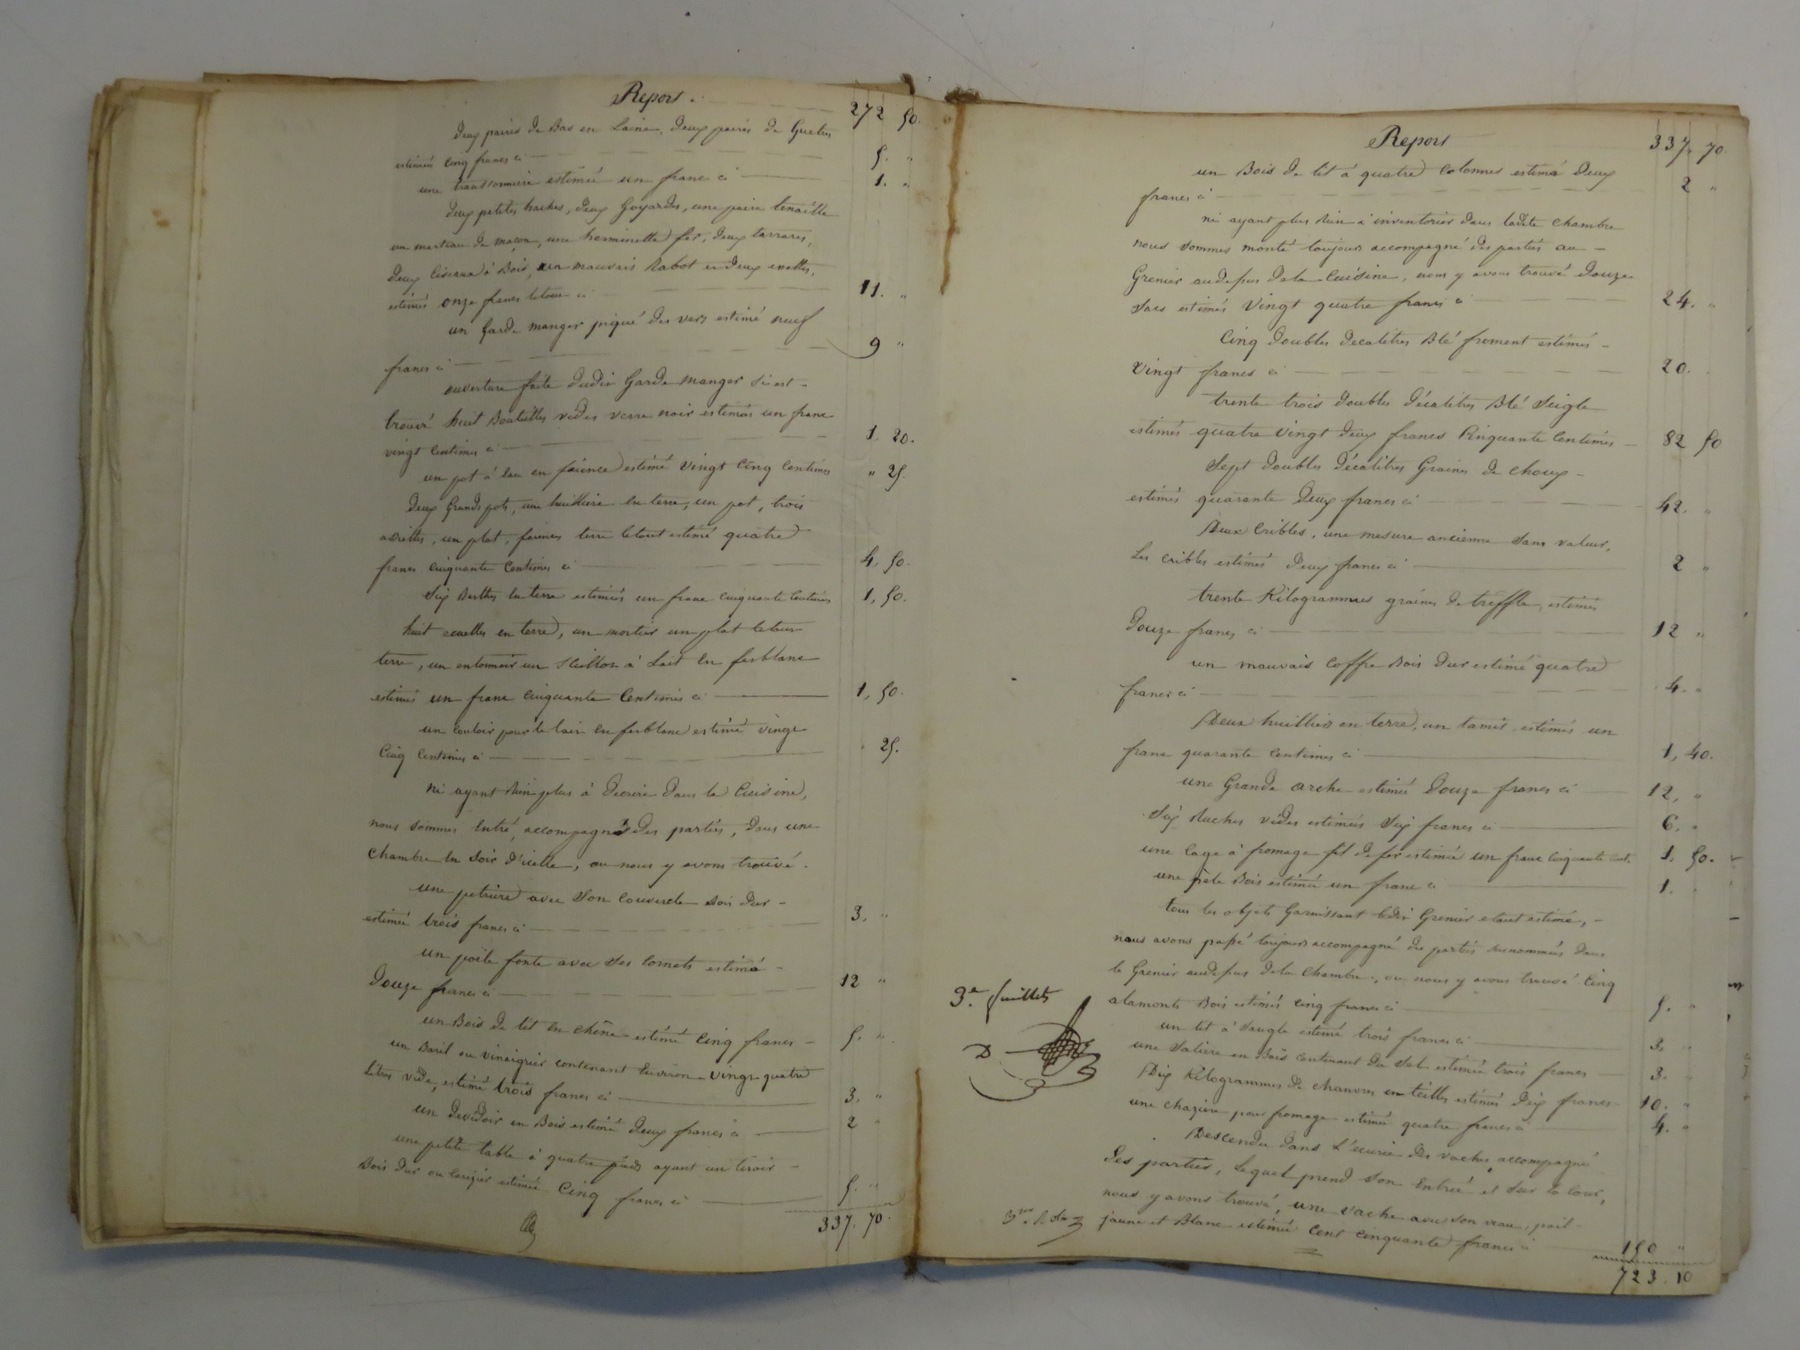 Report ci 272 50.
deux paires de Bas en Laine, deux paires de Guetres
estimés cinq francs ci 5. "
une estimée un franc ci 1. "
deux petites haches, deux Goyardes, une paire tenaille
un marteau de maçon, une herminette fer, deux tarrares,
deux Ciseaux à Bois, un mauvais Rabot et deux
estimés onze francs letout ci 11. "
un Garde manger piqué des vers estimé neuf
francs ci 9 "
ouverture faite dudit Garde manger s'i est
trouvé huit Bouteilles vides verre noir estimés un franc
vingt Centimes ci 1, 20.
un pot à Eau en faience estimé vingt Cinq Centimes " 25.
deux Grands pots, une huilliere en terre, un pot, trois
assiettes, un plat, faience terre letout estimé quatre
francs cinquante Centimes ci 4, 50.
Six Berthes en terre estimées un franc cinquante Centimes 1, 50.
huit ecuelles en terre, un mortier un plat letout
terre, un entonnoir un à Lait En ferblanc
estimés un franc cinquante Centimes ci 1, 50.
un couloir pour le lait en ferblanc estimé vingt
Cinq Centimes ci 25.
Ni ayant Rien plus à Decrire Dans la Cuisine,
nous sommes Entré, accompagné des parties, dans une
chambre En Soir d'icelle, ou nous y avons trouvé.
une petriere avec Son Couvercle Bois Dur
estimée trois francs ci 3. "
un poile fonte avec Ses Cornets estimé
Douze francs ci 12 "
un Bois de lit En chêne estimé Cinq francs 5. "
un Baril ou vinaigrier contenant Environ vingt quatre
Litres vide, estimé trois francs ci 3. "
un devidoir en Bois estimé deux francs ci 2 "
une petite table à quatre pieds ayant un tiroir
Bois dur ou estimée Cinq francs ci 5. "
337. 70.
Report 337. 70.
un Bois de lit à quatre Colonnes estimé Deux
francs ci 2 "
ni ayant plus Rien a inventorier dans ladite chambre
nous Sommes monté toujours accompagné des parties au
Grenier audessus dela Cuisine, nous y avons trouvé Douze
Sacs estimés vingt quatre francs ci 24. "
Cinq doubles decalitres Blé froment estimés
vingt francs ci 20.
trente trois Doubles Décalitres Blé Seigle
estimés quatre vingt deux francs Cinquante Centimes 82 50
Sept doubles Décalitres Graines de choux
estimés quarante deux francs ci 42. "
Deux Cribles, une mesure ancienne Sans valeur,
Les cribles estimés Deux francs ci 2 "
trente Kilogrammes graines de treffle, estimés
Douze francs ci 12 "
un mauvais Coffre Bois Dur estimé quatre
francs ci 4. "
Deux huilliers en terre, un tamis estimés un
franc quarante Centimes ci 1, 40.
une Grande arche estimée Douze francs ci 12, "
Six Ruches vides estimées Six francs ci 6. "
une Cage à fromage fil de fer estimée un franc Cinquante Cent. 1. 50.
une pêle Bois estimée un franc ci 1.
tous les objets Garnissant ledit Grenier etant estimé,
nous avons passé toujours accompagné des parties Sus nommées dans
le Grenier audessus dela Chambre, ou nous y avons trouvé Cinq
Bois estimés Cinq francs ci 5. "
un lit à Sangle estimé trois francs ci 3. "
une Saliere en Bois contenant du Sel estimée trois francs 3. "
Dix Kilogrammes de chanvre en teilles estimés Dix francs 10. "
une chaziere pour fromage estimée quatre francs ci 4. "
Descendu dans L'écurie des vaches accompagné
des parties, Lequel prend Son Entrée et Sur la Cour,
nous y avons trouvé, une vache avec son veau, poil
jaune et Blanc estimée Cent Cinquante francs ci 150 "
723. 10
3.e feuillet
D
3.me